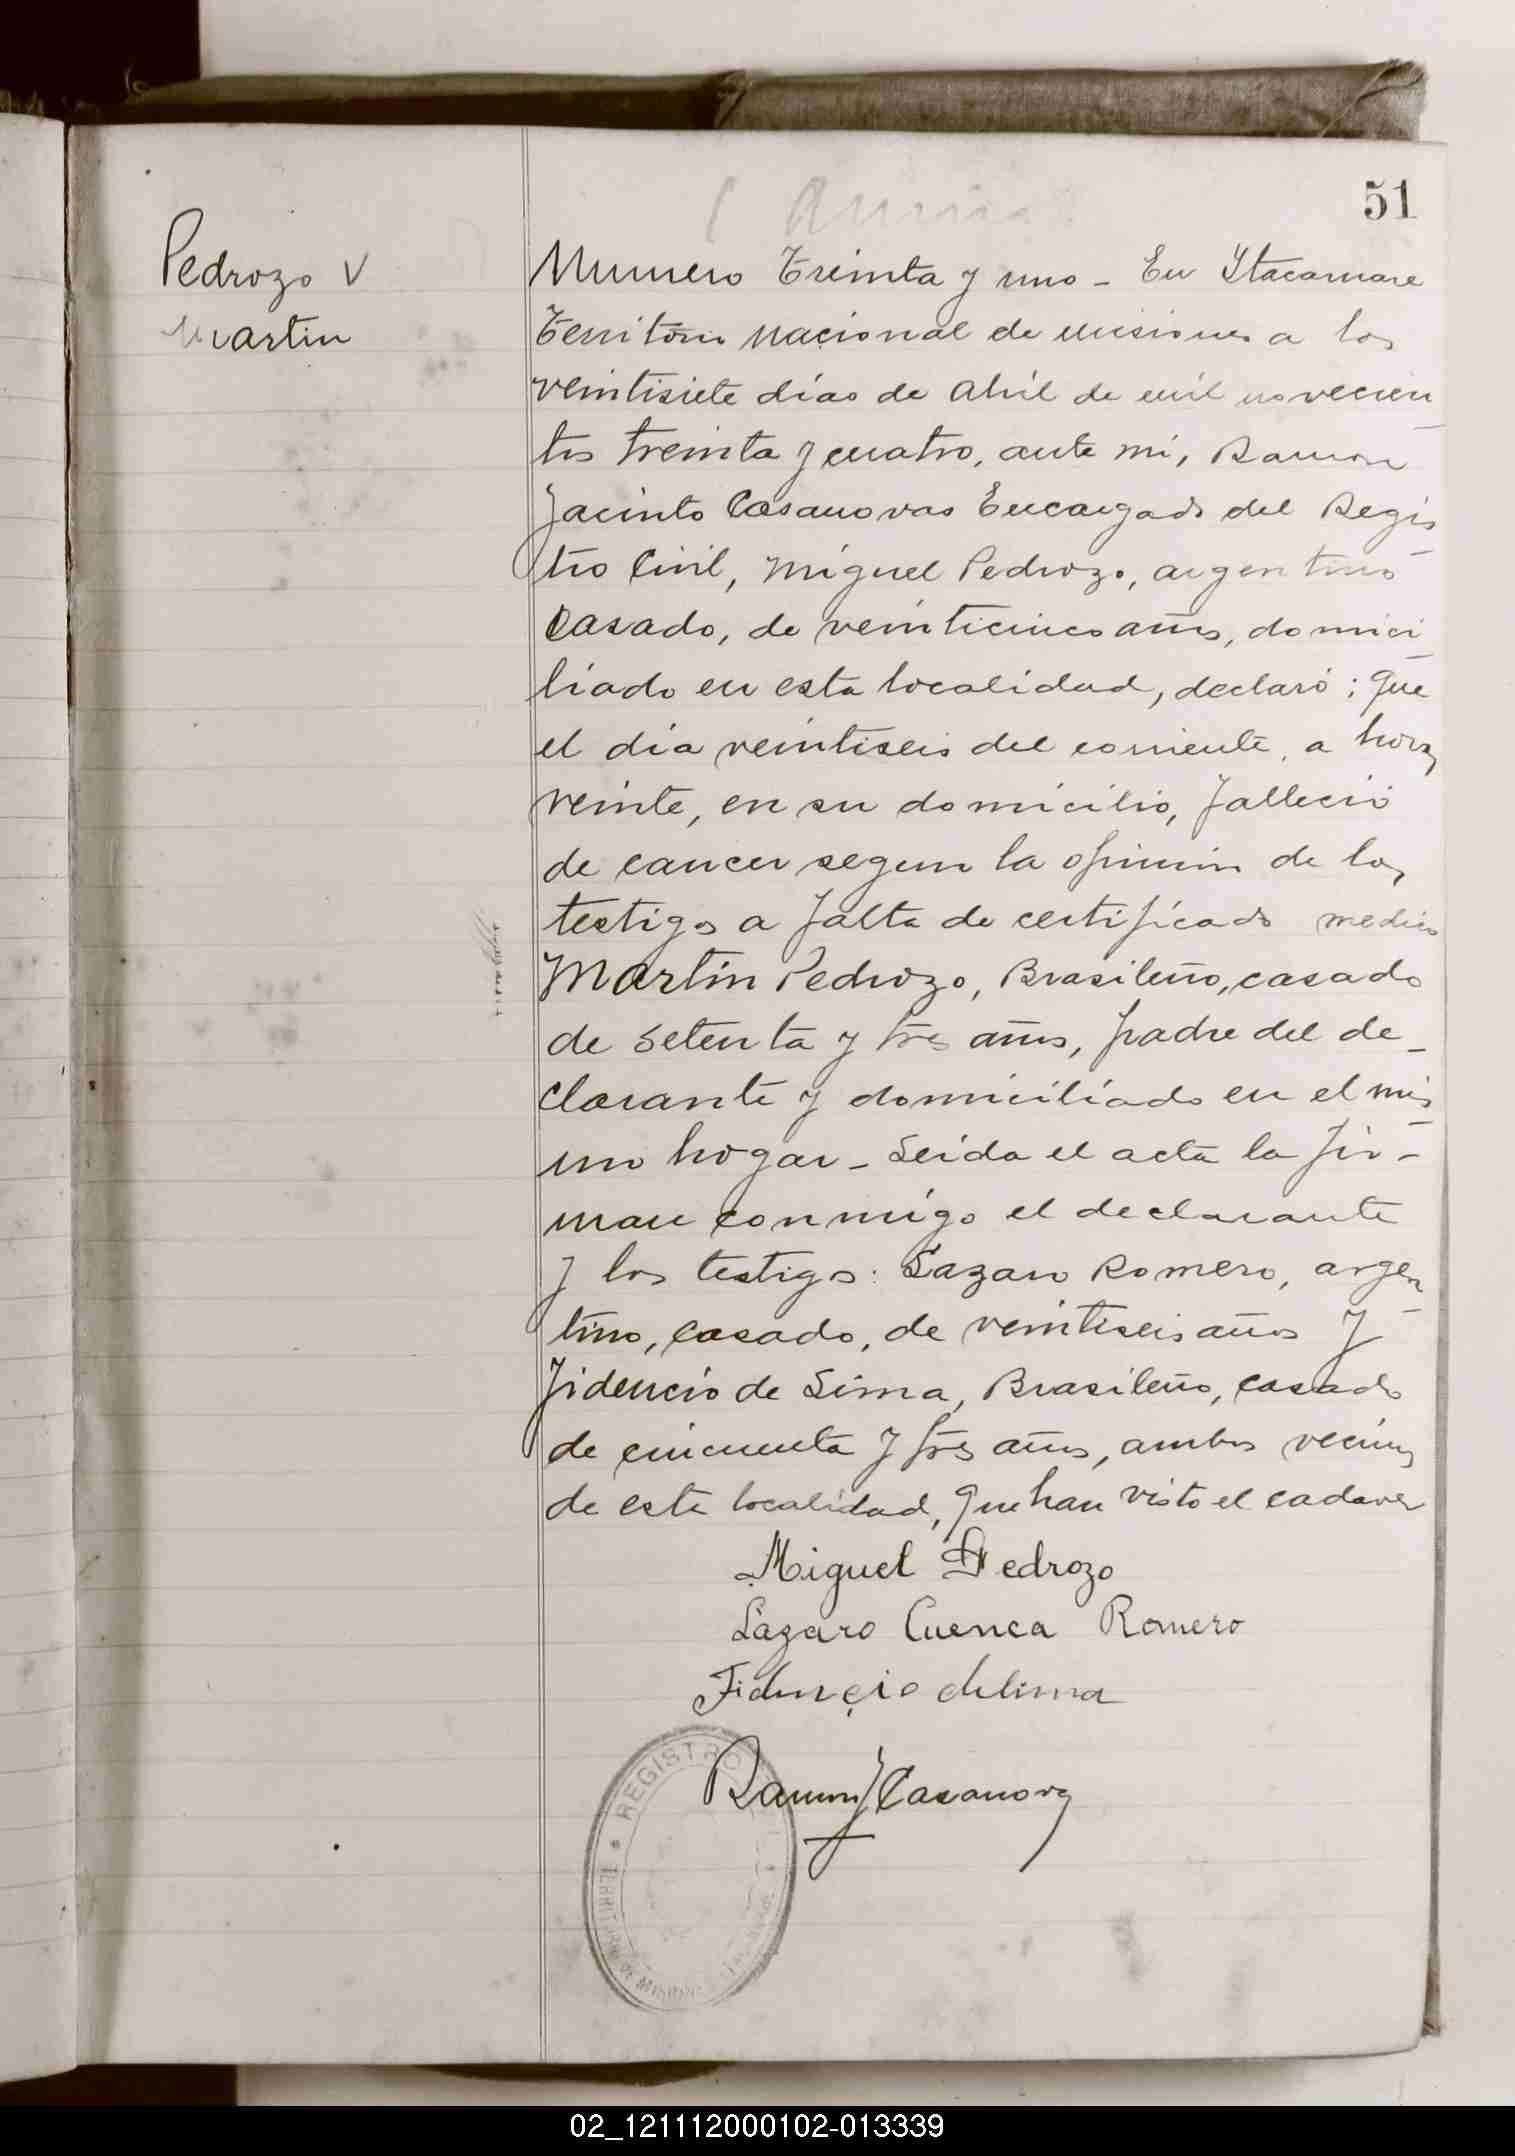 51
Pedrozo V
Martin
Numero treinta y uno - En Itacaruare
Territorio Nacional de Misiones a los
veintisiete dias de Abril de mil novecien
tos treinta y cuatro, ante mi, Ramon
Jacinto Casanovas Encargado del Regis
tro Civil, Miguel Pedrozo, argentino
casado, de veinticinco años, domici
liado en esta localidad, declaró; que
el dia veintiseis del corriente, a horas
veinte, en su domicilio, falleció
de cancer segun la opinion de los
testigos a falta de certificado medico
Martin Pedrozo, Brasileño, casado
de setenta y tres años, padre del de-
clarante y domiciliado en el mis
mo hogar - Leida el acta la fir-
man conmigo el declarante
y los testigos: Lazaro Romero, argen
tino, casado, de veintiseis años y
Fidencio de Lima, Brasileño, casado
de cincuenta y tres años, ambos vecinos
de esta localidad, que han visto el cadaver
Miguel Pedrozo
Lázaro Cuenca Romero
Fidençio delima
Ramon J Casanova
REGISTRO
TERRITORIO DE MISIONES
02_121112000102-013339